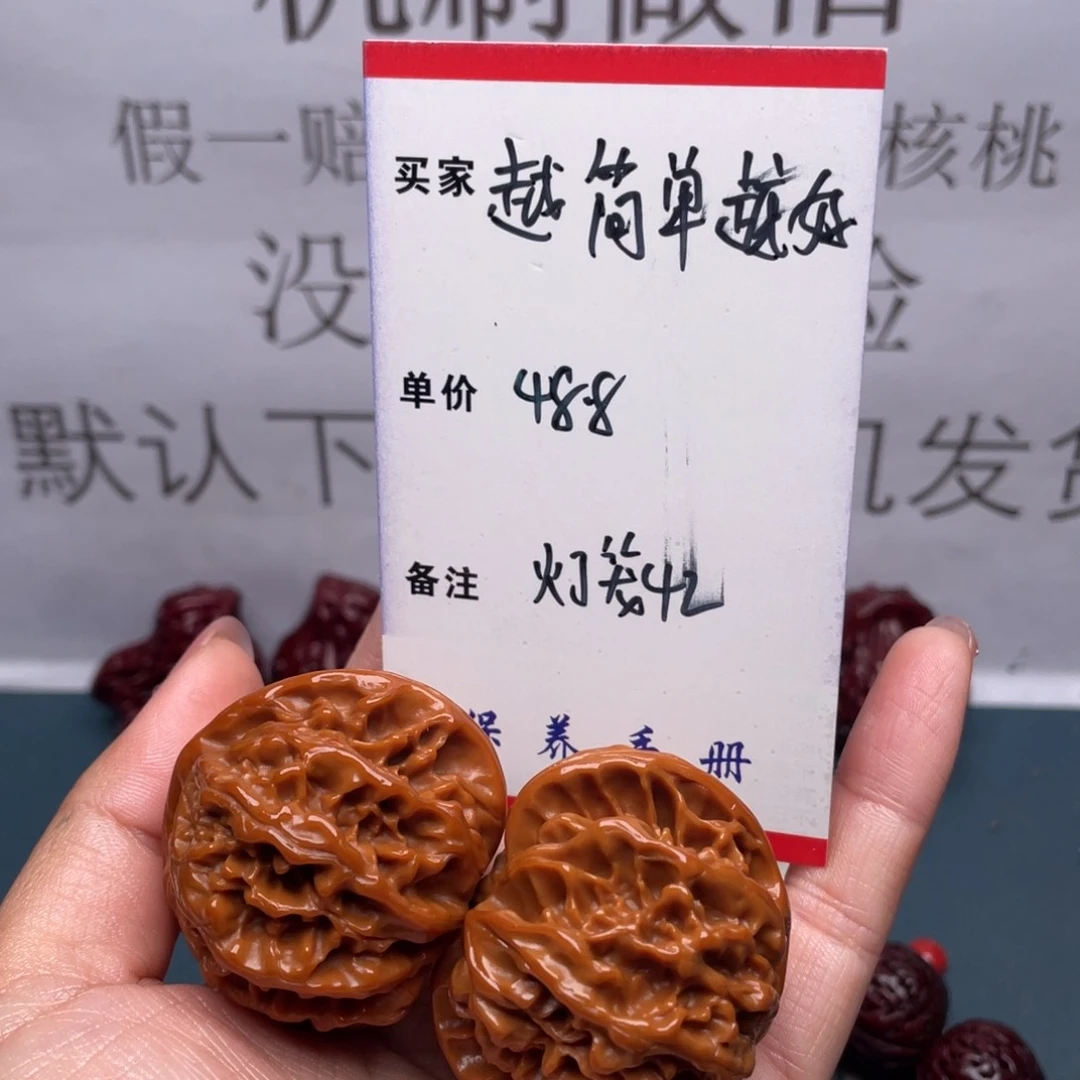 机制做旧
假一赔
核桃
没
验
默认下
机发货
买家 越简单越好
单价 48.8
备注 灯笼42
保养手册